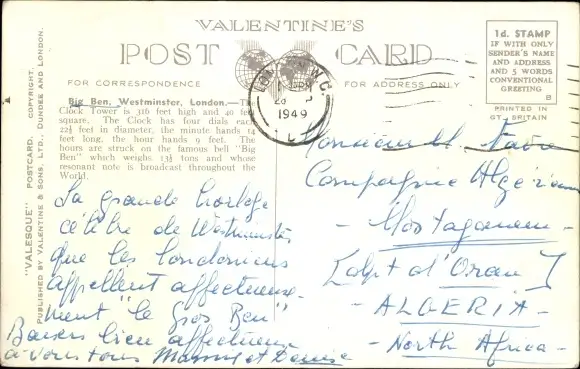 VALENTINE'S
POST CARD
FOR CORRESPONDENCE
FOR ADDRESS ONLY
1d. STAMP
IF WITH ONLY
SENDER'S NAME
AND ADDRESS
AND 5 WORDS
CONVENTIONAL
GREETING
B
PRINTED IN
GT. BRITAIN
LONDON W.C.
1949
Big Ben, Westminster, London.—The
Clock Tower is 316 feet high and 40 feet
square. The Clock has four dials each
22½ feet in diameter, the minute hands 14
feet long, the hour hands 9 feet. The
hours are struck on the famous bell "Big
Ben" which weighs 13½ tons and whose
resonant note is broadcast throughout the
World.
"VALESQUE" POSTCARD. COPYRIGHT.
PUBLISHED BY VALENTINE & SONS, LTD., DUNDEE AND LONDON.
La grande horloge
célèbre de Westminster
que les londoniens
appellent affectueuse-
ment "le Gros Ben"
Baisers bien affectueux
à vous tous Mamy et Denise
Monsieur M. Favre
Compagnie Algérienne
- Mostaganem -
Dépt d'Oran
- ALGERIA -
- North Africa -